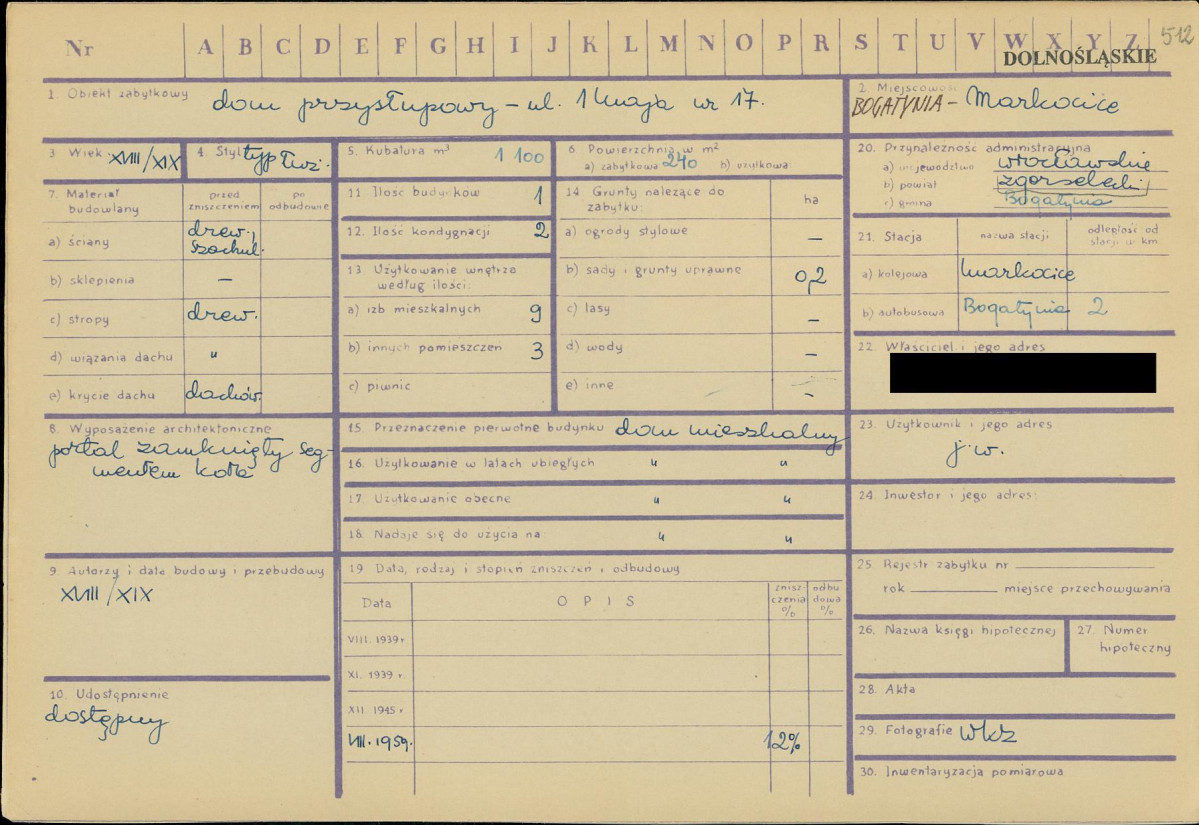 Nr A B C D E F G H I J K L M N O P R S T U V W X Y Z 512
DOLNOŚLĄSKIE
1. Obiekt zabytkowy dom przysłupowy – ul. 1 Maja nr 17.
2. Miejscowość
BOGATYNIA – Markocice
3. Wiek XVIII/XIX
4. Styl typ łuż.
5. Kubatura m³ 1 100
6. Powierzchnia w m²
a) zabytkowa 240 b) użytkowa:
7. Materiał budowlany
przed zniszczeniem
po odbudowie
a) ściany drew., szachul.
b) sklepienia –
c) stropy drew.
d) wiązania dachu "
e) krycie dachu dachów.
8. Wyposażenie architektoniczne
portal zamknięty seg-
mentem koła
9. Autorzy i data budowy i przebudowy
XVIII/XIX
10. Udostępnienie
dostępny
11. Ilość budynków 1
12. Ilość kondygnacji 2
13. Użytkowanie wnętrza
według ilości:
a) izb mieszkalnych 9
b) innych pomieszczeń 3
c) piwnic
14. Grunty należące do
zabytku: ha
a) ogrody stylowe –
b) sady i grunty uprawne 0,2
c) lasy –
d) wody –
e) inne –
15. Przeznaczenie pierwotne budynku dom mieszkalny
16. Użytkowanie w latach ubiegłych " "
17. Użytkowanie obecne " "
18. Nadaje się do użycia na: " "
19. Data, rodzaj i stopień zniszczeń i odbudowy
Data OPIS
znisz-
czenia
%
odbu
dowa
%
VIII. 1939 r.
XI. 1939 r.
XII. 1945 r.
VIII. 1959. 12%
20. Przynależność administracyjna
a) województwo wrocławskie
b) powiat zgorzelecki
c) gmina Bogatynia
21. Stacja nazwa stacji odległość od
stacji w km
a) kolejowa Markocice
b) autobusowa Bogatynia 2
22. Właściciel i jego adres
23. Użytkownik i jego adres
j.w.
24. Inwestor i jego adres:
25. Rejestr zabytku nr
rok miejsce przechowywania
26. Nazwa księgi hipotecznej
27. Numer
hipoteczny
28. Akta
29. Fotografie WKZ
30. Inwentaryzacja pomiarowa